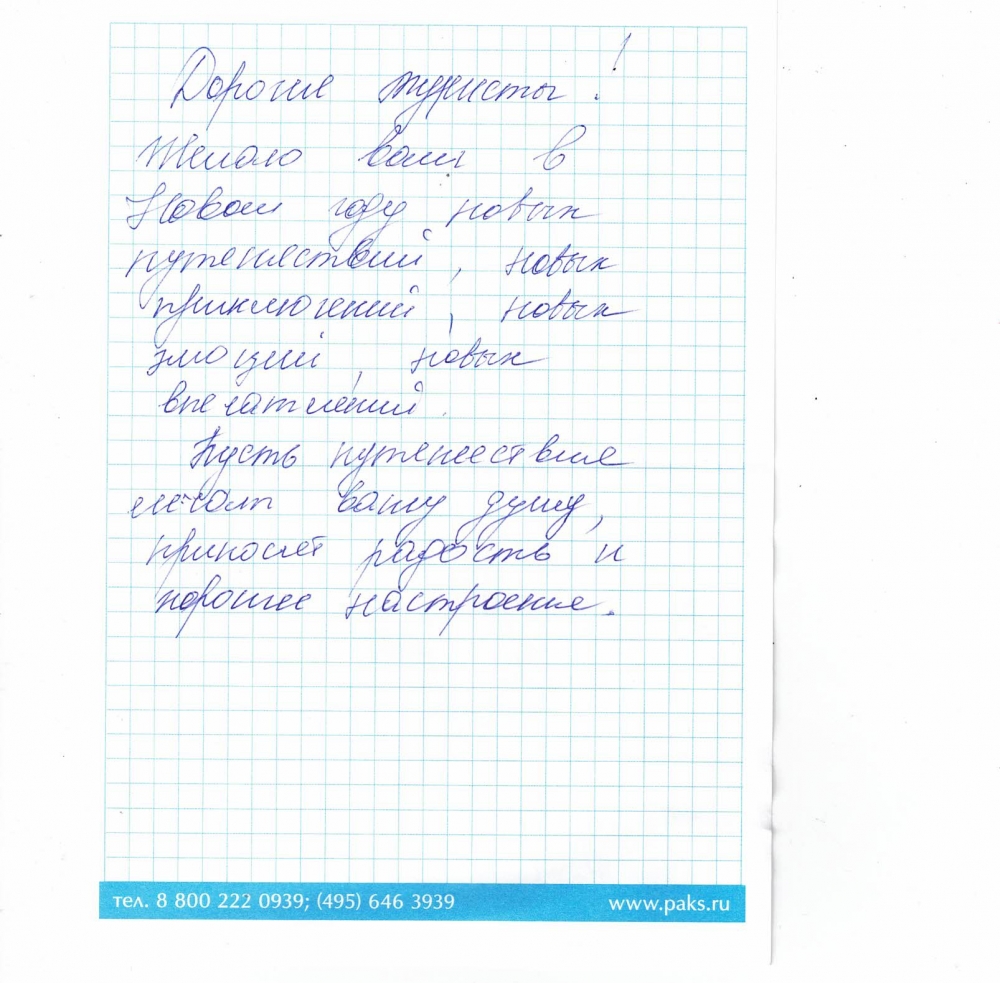 Дорогие туристы!
Желаю вам в
Новом году новых
путешествий, новых
приключений, новых
эмоций, новых
впечатлений.
Пусть путешествие
лечат вашу душу,
приносят радость и
хорошее настроение.
тел. 8 800 222 0939; (495) 646 3939 www.paks.ru